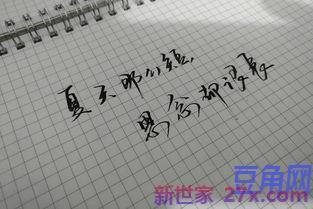 夏天那么短,
思念却很长
豆角网
新世家 27x.com